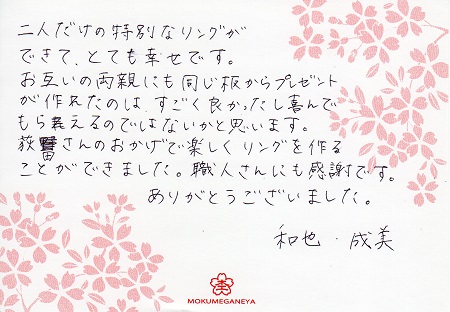 二人だけの特別なリングが
できて、とても幸せです。
お互いの両親にも同じ板からプレゼント
が作れたのは、すごく良かったし喜んで
もらえるのではないかと思います。
荻さんのおかげで楽しくリングを作る
ことができました。職人さんにも感謝です。
ありがとうございました。
和也・成美
MOKUMEGANEYA